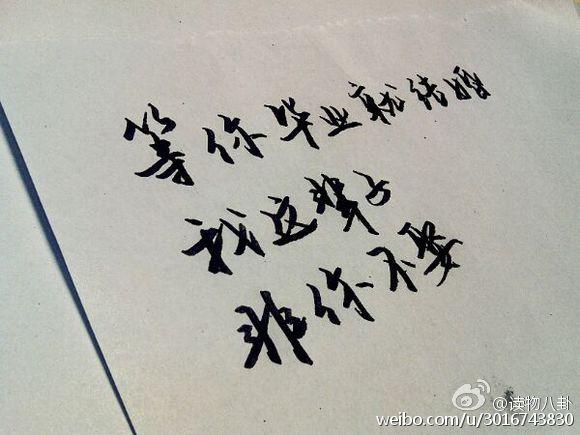 等你毕业就结婚
我这辈子
非你不娶
@读物八卦
weibo.com/u/3016743830